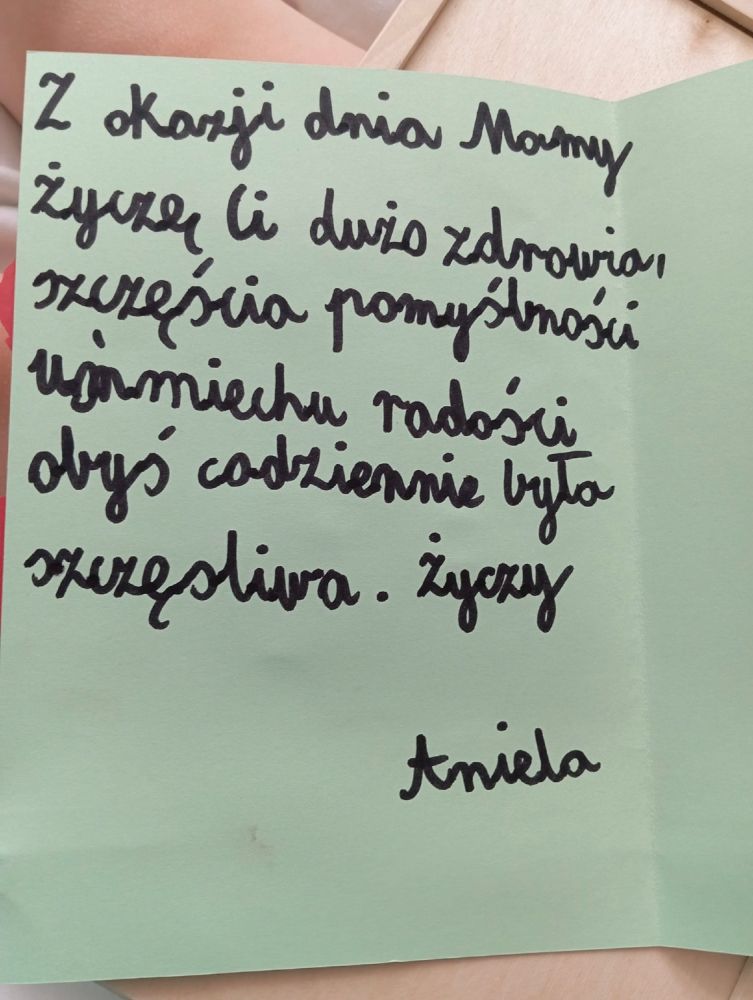 Z okazji dnia Mamy
życzę Ci dużo zdrowia,
szczęścia pomyślności
uśmmiechu radości
obyś codziennie była
szczęsliwa. życzy
Aniela